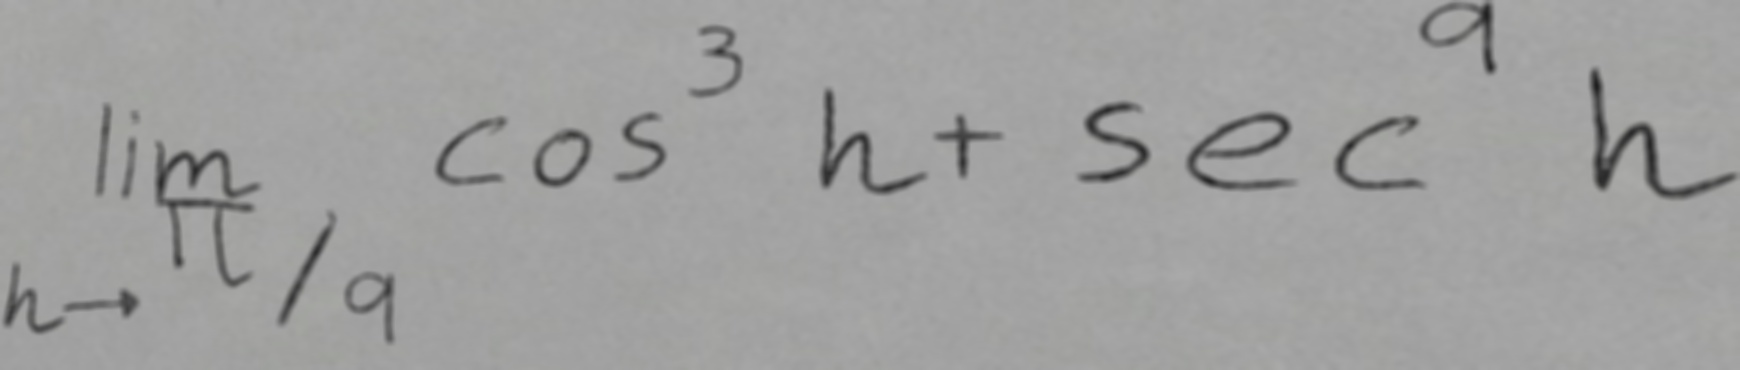 \lim_{h \to \pi/9} \cos^3 h + \sec^9 h